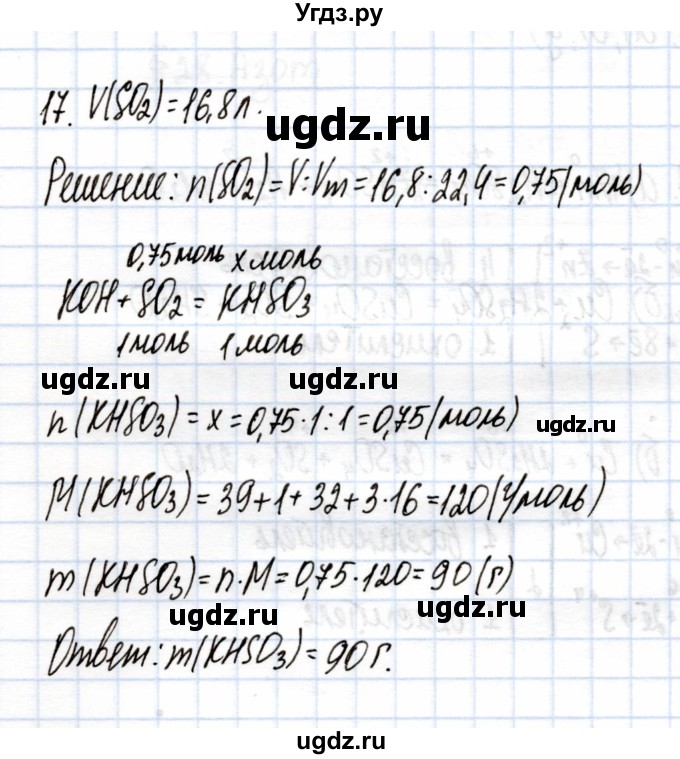 Угдз.ру
17. V(SO₂)=16,8л.
ugdz.ru
Решение: n(SO₂)=V:Vm=16,8:22,4=0,75(моль)
0,75моль xмоль
KOH+SO₂=KHSO₃
1моль 1моль
ugdz.ru ugdz.ru
n(KHSO₃)=x=0,75·1:1=0,75(моль)
ugdz.ru
M(KHSO₃)=39+1+32+3·16=120(г/моль)
m(KHSO₃)=n·M=0,75·120=90(г)
ugdz.ru ugdz.ru
Ответ: m(KHSO₃)=90г.
ugdz.ru